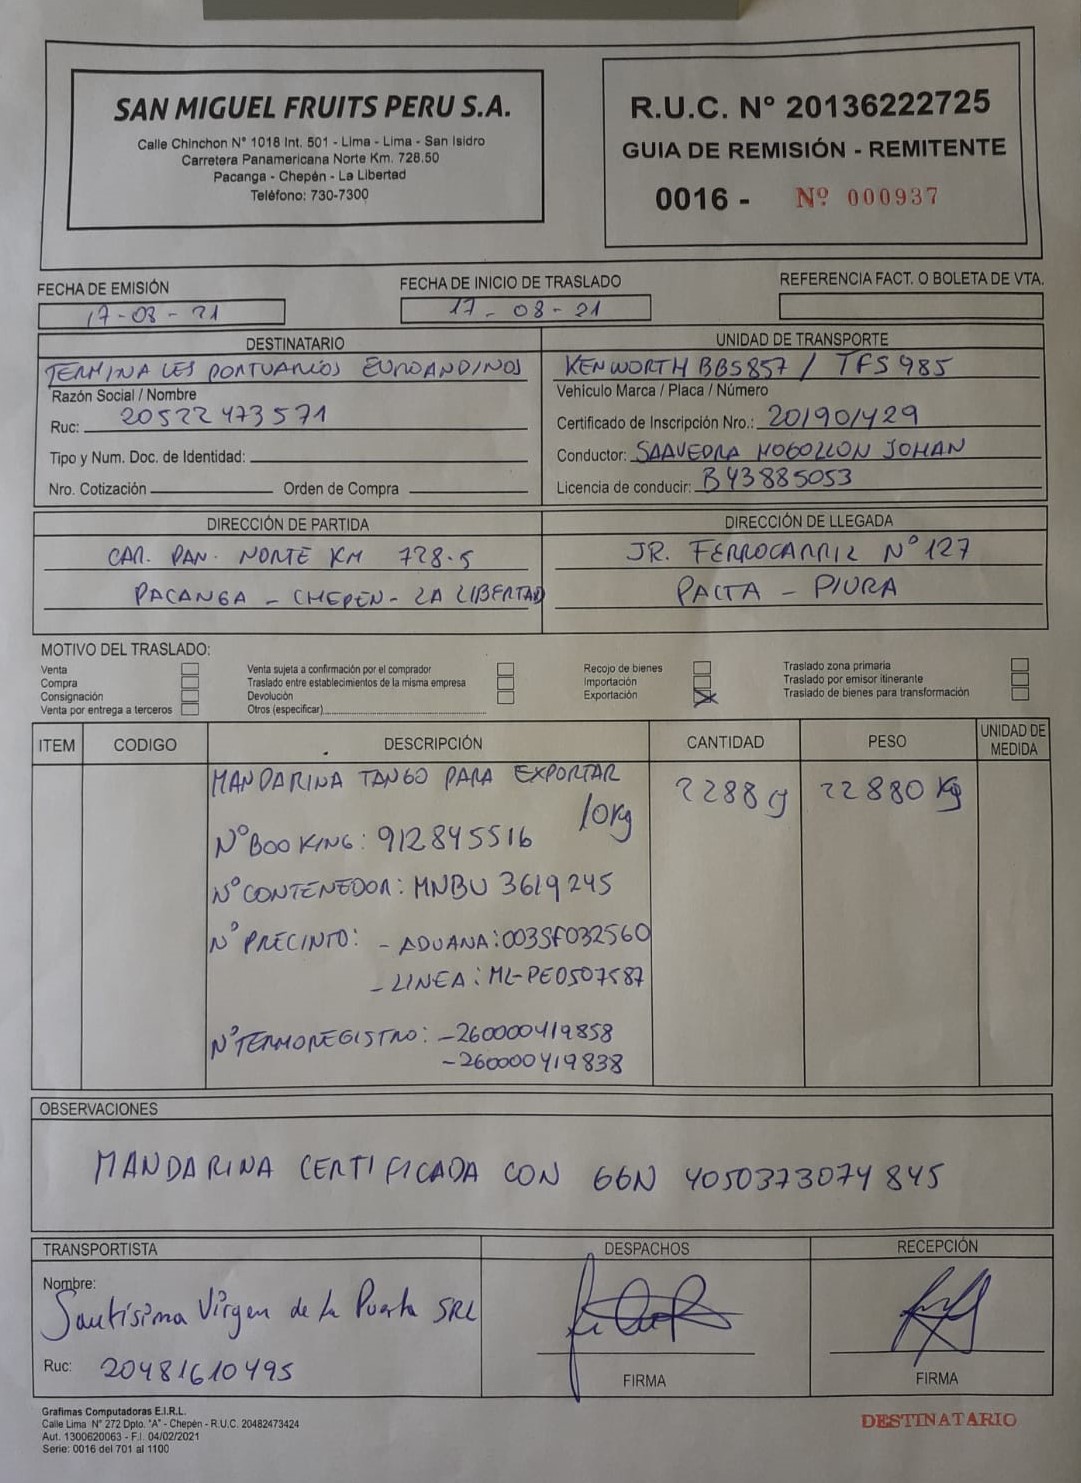 SAN MIGUEL FRUITS PERU S.A.
Calle Chinchon N° 1018 Int. 501 - Lima - Lima - San Isidro
Carretera Panamericana Norte Km. 728.50
Pacanga - Chepén - La Libertad
Teléfono: 730-7300
R.U.C. N° 20136222725
GUIA DE REMISIÓN - REMITENTE
0016 - Nº 000937
FECHA DE EMISIÓN
17-08-21
FECHA DE INICIO DE TRASLADO
17-08-21
REFERENCIA FACT. O BOLETA DE VTA.
DESTINATARIO
TERMINALES PORTUARIOS EUROANDINOS
Razón Social / Nombre
Ruc: 20522473571
Tipo y Num. Doc. de Identidad:
Nro. Cotización Orden de Compra
UNIDAD DE TRANSPORTE
KENWORTH BBS857 / TFS985
Vehículo Marca / Placa / Número
Certificado de Inscripción Nro.: 20190/429
Conductor: SAAVEDRA MOGOLLON JOHAN
Licencia de conducir: B43885053
DIRECCIÓN DE PARTIDA
CAR. PAN. NORTE KM 728.5
PACANGA - CHEPEN - LA LIBERTAD
DIRECCIÓN DE LLEGADA
JR. FERROCARRIL N° 127
PAITA - PIURA
MOTIVO DEL TRASLADO:
Venta
Compra
Consignación
Venta por entrega a terceros
Venta sujeta a confirmación por el comprador
Traslado entre establecimientos de la misma empresa
Devolución
Otros (especificar)
Recojo de bienes
Importación
Exportación
Traslado zona primaria
Traslado por emisor itinerante
Traslado de bienes para transformación
ITEM CODIGO DESCRIPCIÓN CANTIDAD PESO UNIDAD DE MEDIDA
MANDARINA TANGO PARA EXPORTAR 2288 cj 22880 Kg
10Kg
N° BOOKING: 912845516
N° CONTENEDOR: MNBU 3619245
N° PRECINTO: - ADUANA: 003SF032560
- LINEA: ML-PE0507587
N° TERMOREGISTRO: -260000419858
-260000419838
OBSERVACIONES
MANDARINA CERTIFICADA CON GGN 4050373074845
TRANSPORTISTA
Nombre:
Santísima Virgen de la Puerta SRL
Ruc: 20481610495
DESPACHOS
FIRMA
RECEPCIÓN
FIRMA
Grafimas Computadoras E.I.R.L.
Calle Lima N° 272 Dpto. "A" - Chepén - R.U.C. 20482473424
Aut. 1300620063 - F.I. 04/02/2021
Serie: 0016 del 701 al 1100
DESTINATARIO